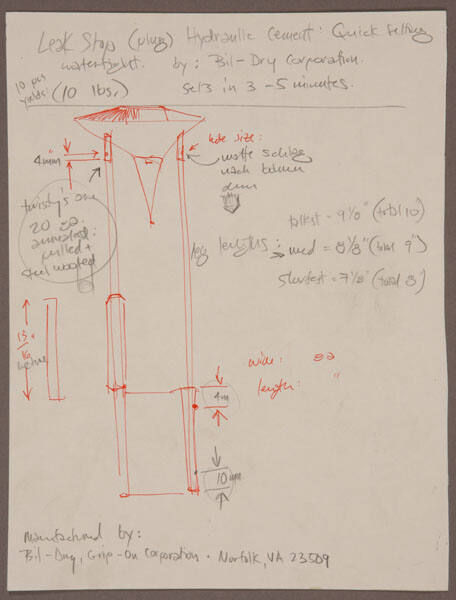 Leak Stop (plug) Hydraulic Cement: Quick Setting
watertight. by: Bil-Dry Corporation.
10 pcs
yields: (10 lbs.)
sets in 3 - 5 minutes.
hole size:
4mm
matte
nach
twisty's are
20 ga.
annealed:
pulled +
steel wooled
leg lengths:
tallest = 9 1/8" (total 10)
med = 8 1/8" (total 9")
shortest = 7 1/8" (total 8")
13/16"
wide:
length: "
4m
10 mm
manufactured by:
Bil-Dry, Grip-On Corporation · Norfolk, VA 23509